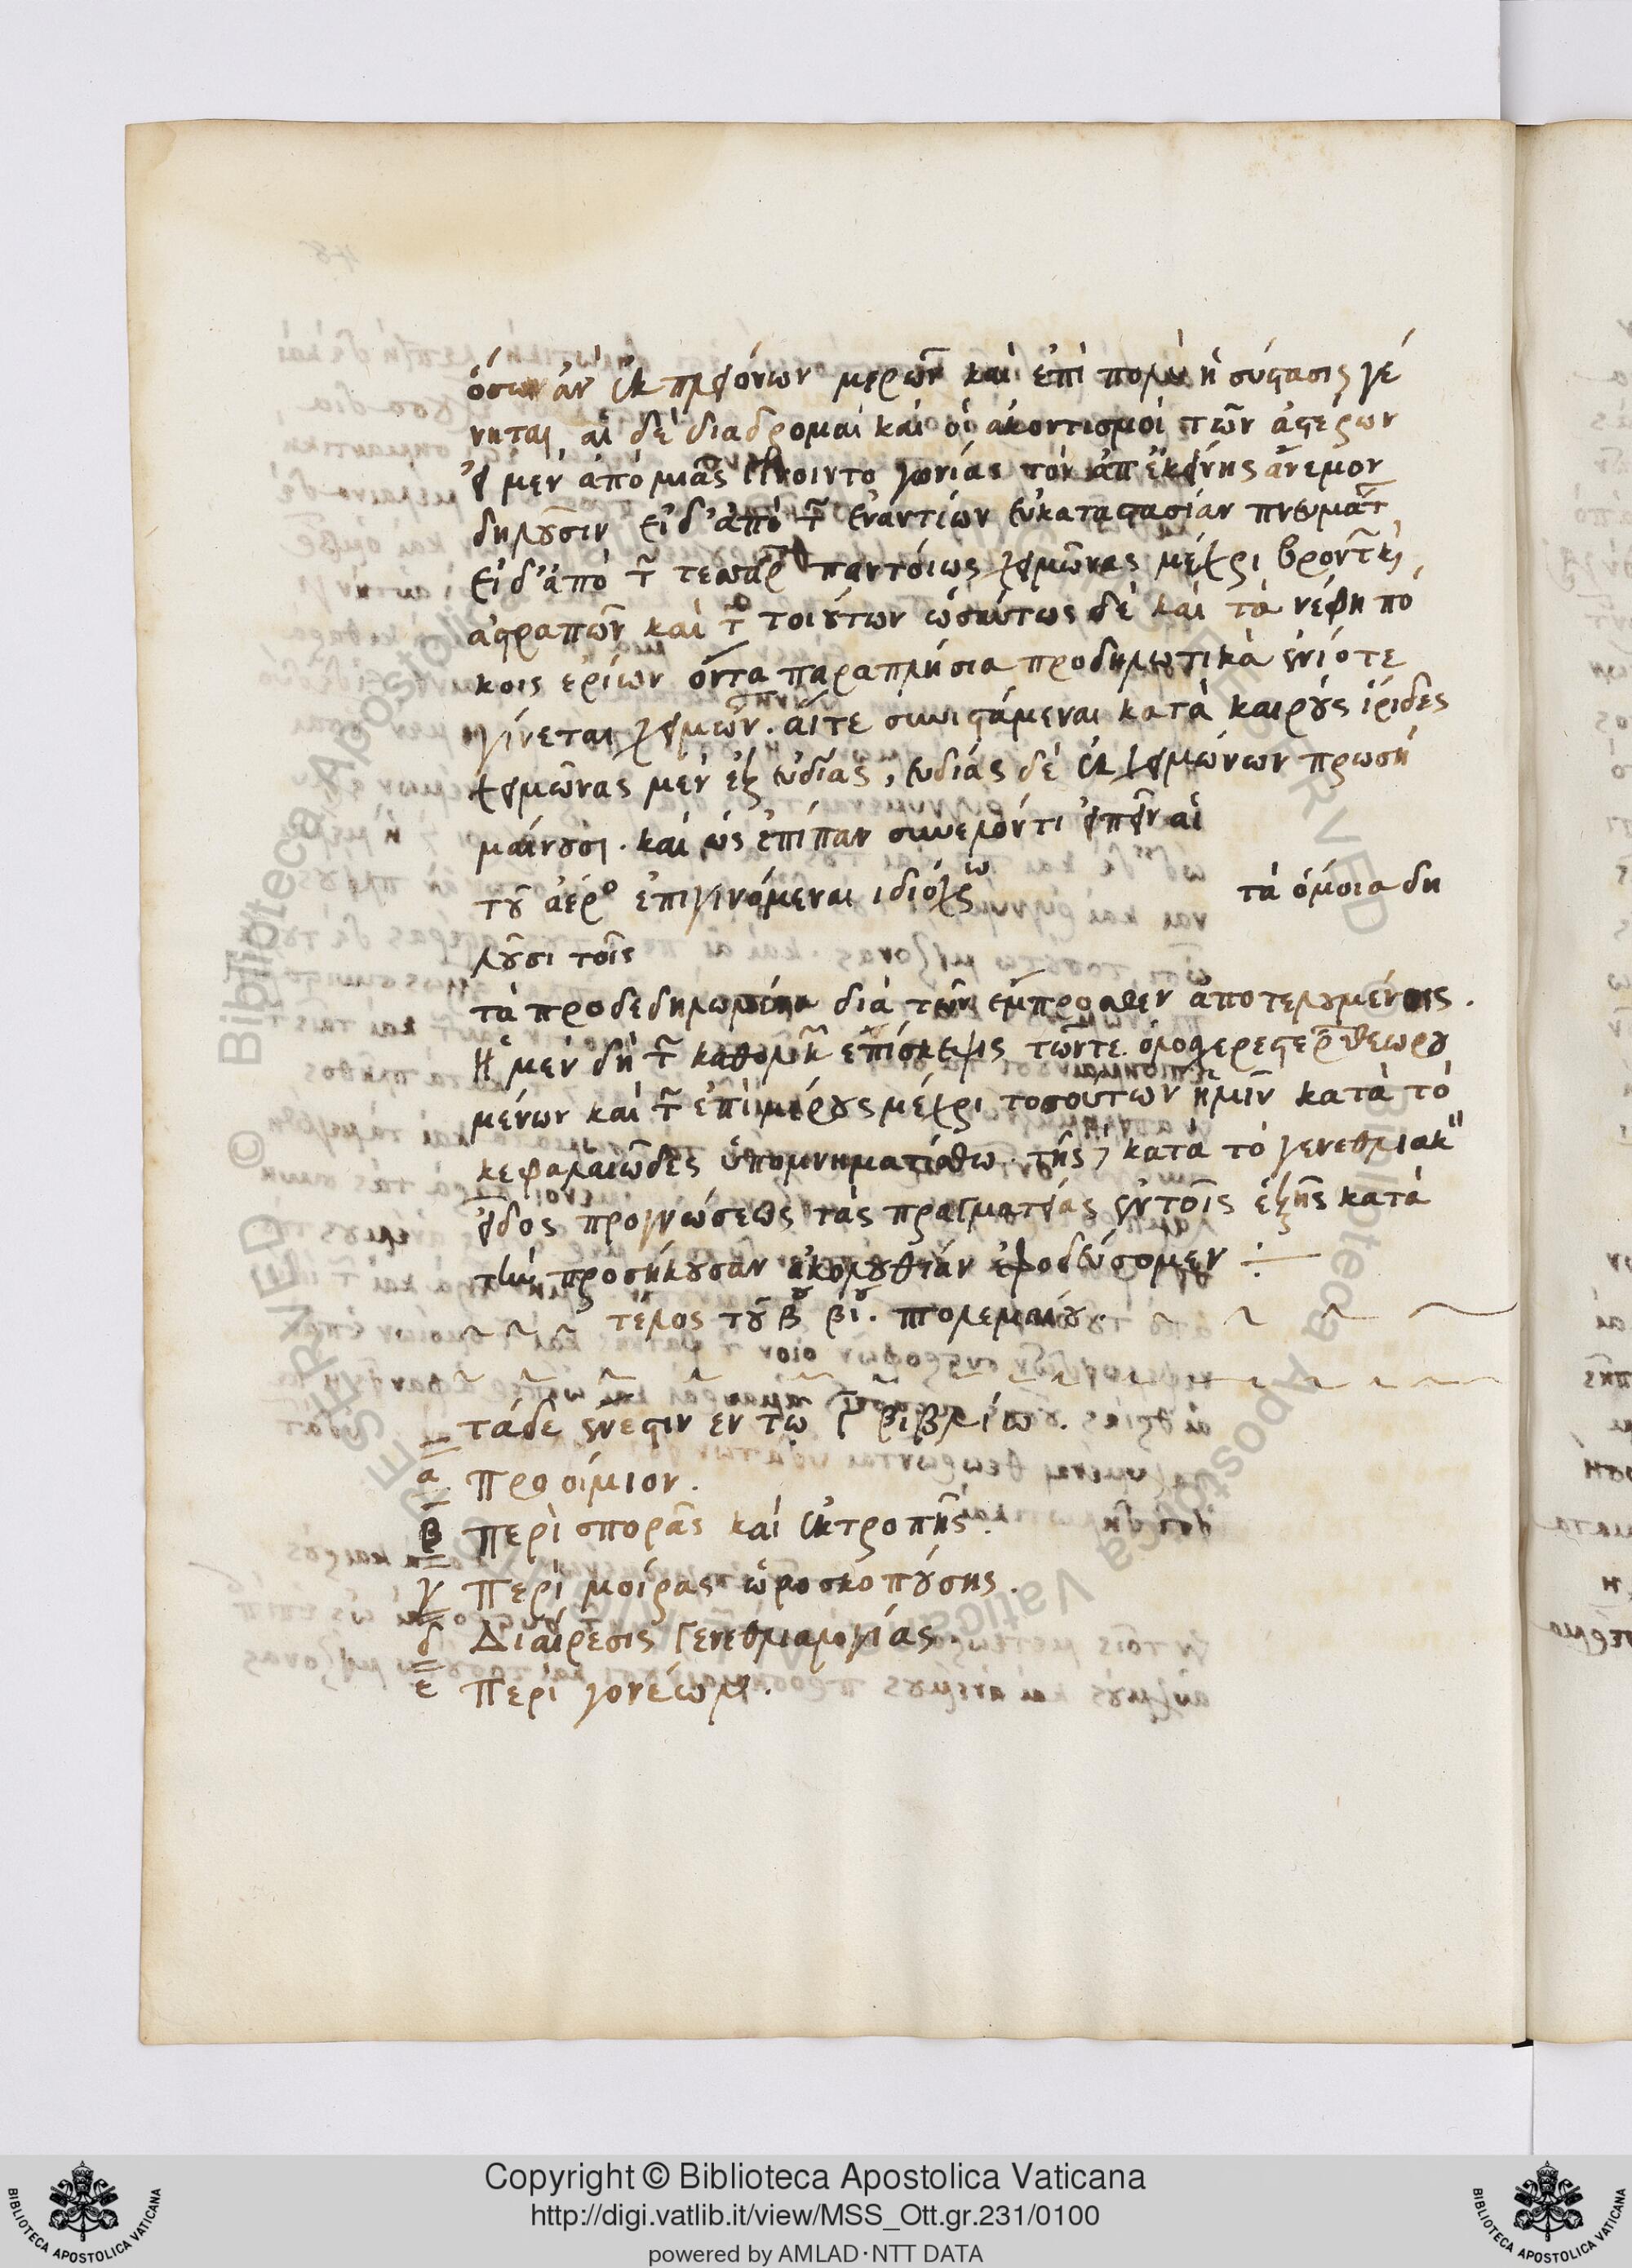 ὅσων ἂν ἐκ πλειόνων μερῶν καὶ ἐπὶ πολὺ ἡ σύστασις γέ
νηται, αἱ δὲ διαδρομαὶ καὶ οἱ ἀκοντισμοὶ τῶν ἀστέρων
εἰ μὲν ἀπὸ μιᾶς γίνοιντο γωνίας τὸν ἀπ' ἐκείνης ἄνεμον
δηλοῦσιν εἰ δ' ἀπὸ τῶν ἐναντίων εὐκαταστασίαν πνευμάτ
εἰ δ' ἀπὸ τῶν τεσσάρ παντοίως χειμῶνας μέχρι βροντῶν καὶ
ἀστραπῶν καὶ τῶν τοιούτων ὡσαύτως δὲ καὶ τὰ νέφη πό
κοις ἐρίων ὄντα παραπλήσια προδηλωτικὰ ἐνίοτε
γίνεται χειμών. αἵ τε συνιστάμεναι κατὰ καιροὺς ἴριδες
χειμῶνας μὲν ἐξ εὐδίας, εὐδίας δὲ ἐκ χειμώνων προση
μαίνουσι. καὶ ὡς ἐπίπαν συνελόντι εἰπεῖν αἱ
τοῦ ἀέρο ἐπιγινόμεναι ἰδιο τὰ ὅμοια δη
λοῦσι τοῖς
τὰ προδεδηλωμένα διὰ τῶν ἔμπροσθεν ἀποτελουμένοις.
Ἡ μὲν δὴ τῶν καθολικ ἐπίσκεψις τῶν τε θεωρου
μένων καὶ τῶν ἐπὶ μέρους μέχρι τοσούτων ἡμῖν κατὰ τὸ
κεφαλαιῶδες ὑπομνηματίσθω. τῆς κατὰ τὸ γενεθλιακ
εἶδος προγνώσεως τὰς πραγματείας ἐν τοῖς ἑξῆς κατὰ
τὴν προσήκουσαν ἀκολουθίαν ἐφοδεύσομεν
τέλος τοῦ βου βι. πτολεμαίου.
τάδε ἔνεστιν ἐν τῷ γ βιβλίω.
α προοίμιον.
β περὶ σπορᾶς καὶ ἐκτροπῆς.
γ περὶ μοίρας ὡροσκοπούσης.
δ Διαίρεσις Γενεθλιαλογίας
ε περὶ γονέων.
Copyright © Biblioteca Apostolica Vaticana
http://digi.vatlib.it/view/MSS_Ott.gr.231/0100
powered by AMLAD·NTT DATA
BIBLIOTECA APOSTOLICA VATICANA
BIBLIOTECA APOSTOLICA VATICANA